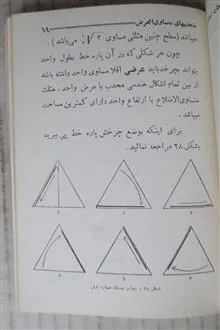 منحنیهای متساوی‌العرض ۶۹
میباشد (سطح چنین مثلثی مساوی ۳√ میباشد).
چون هر شکلی که در آن پاره خط بطول واحد
بتواند بچرخد باید عرضی اقلا مساوی واحد داشته باشد
از بین تمام اشکال هندسی محدب با عرض واحد، مثلث
متساوی‌الاضلاع با ارتفاع واحد دارای کمترین مساحت
میباشد.
برای اینکه بوضع چرخش پاره خط پی ببرید
بشکل ۲۸ مراجعه نمائید.
شکل ۲۸